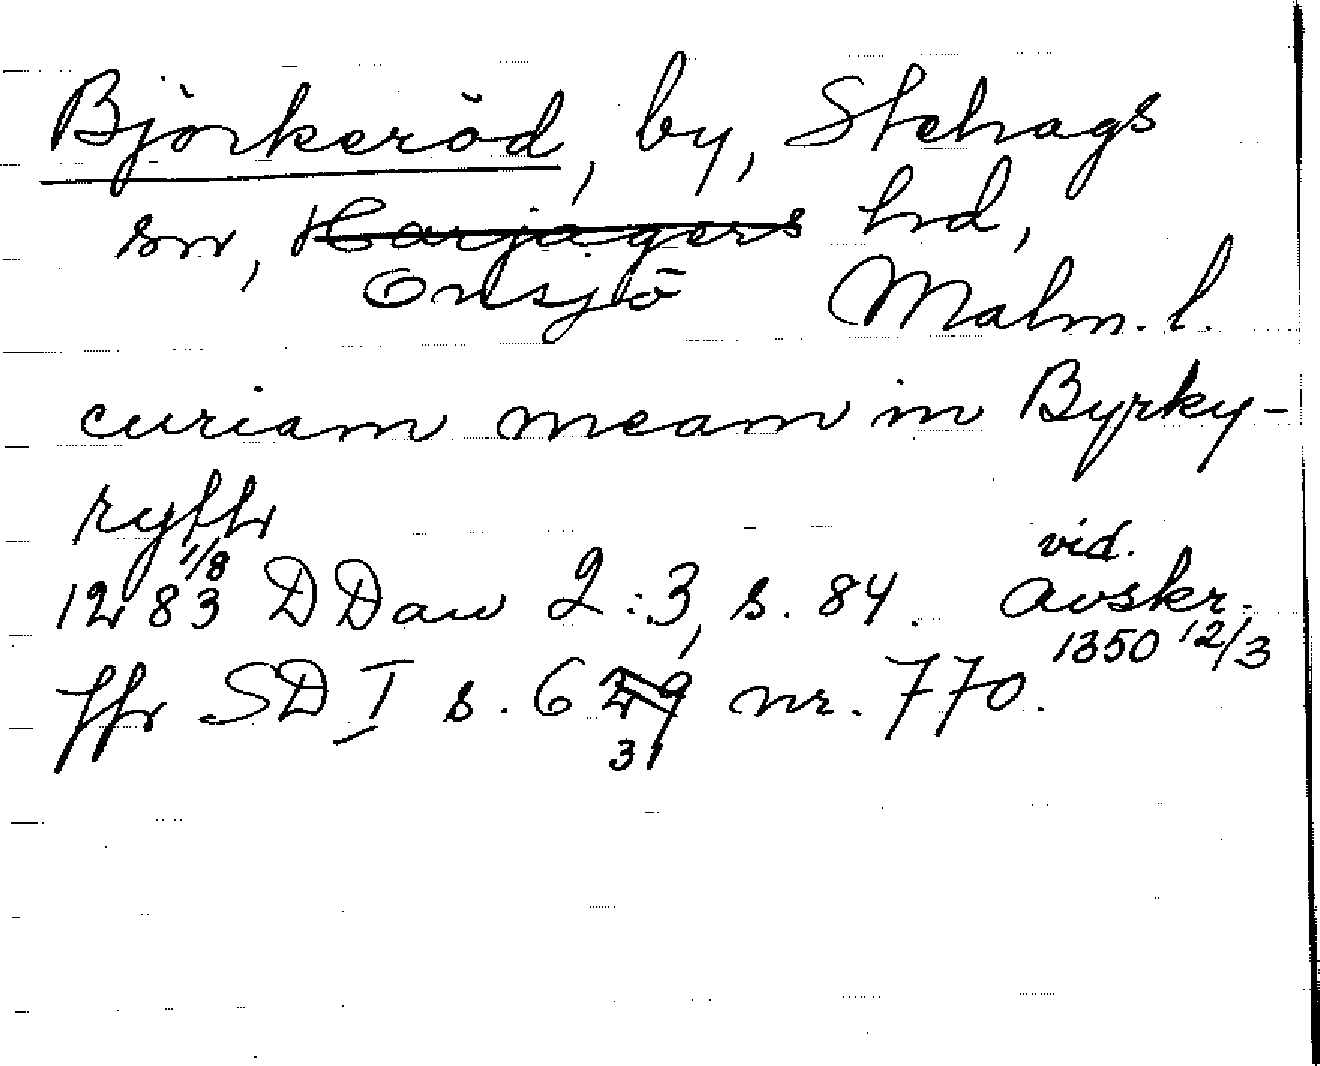 Björkeröd, by, Stehags
sn, Harjagers hd,
Onsjö Malm. l.
curiam meam in Byrky-
rythr
1283 1/8 DDan 2:3, s. 84. vid. avskr. 1350 12/3
Jfr SD I s. 629 nr. 770.
31